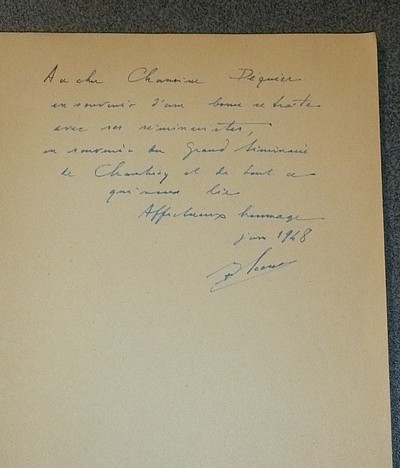 Au cher Chanoine Dequier
en souvenir d'une bonne retraite
avec ses séminaristes,
en souvenir du Grand Séminaire
de Chambéry et de tout ce
qui nous lie
Affectueux hommage
juin 1948